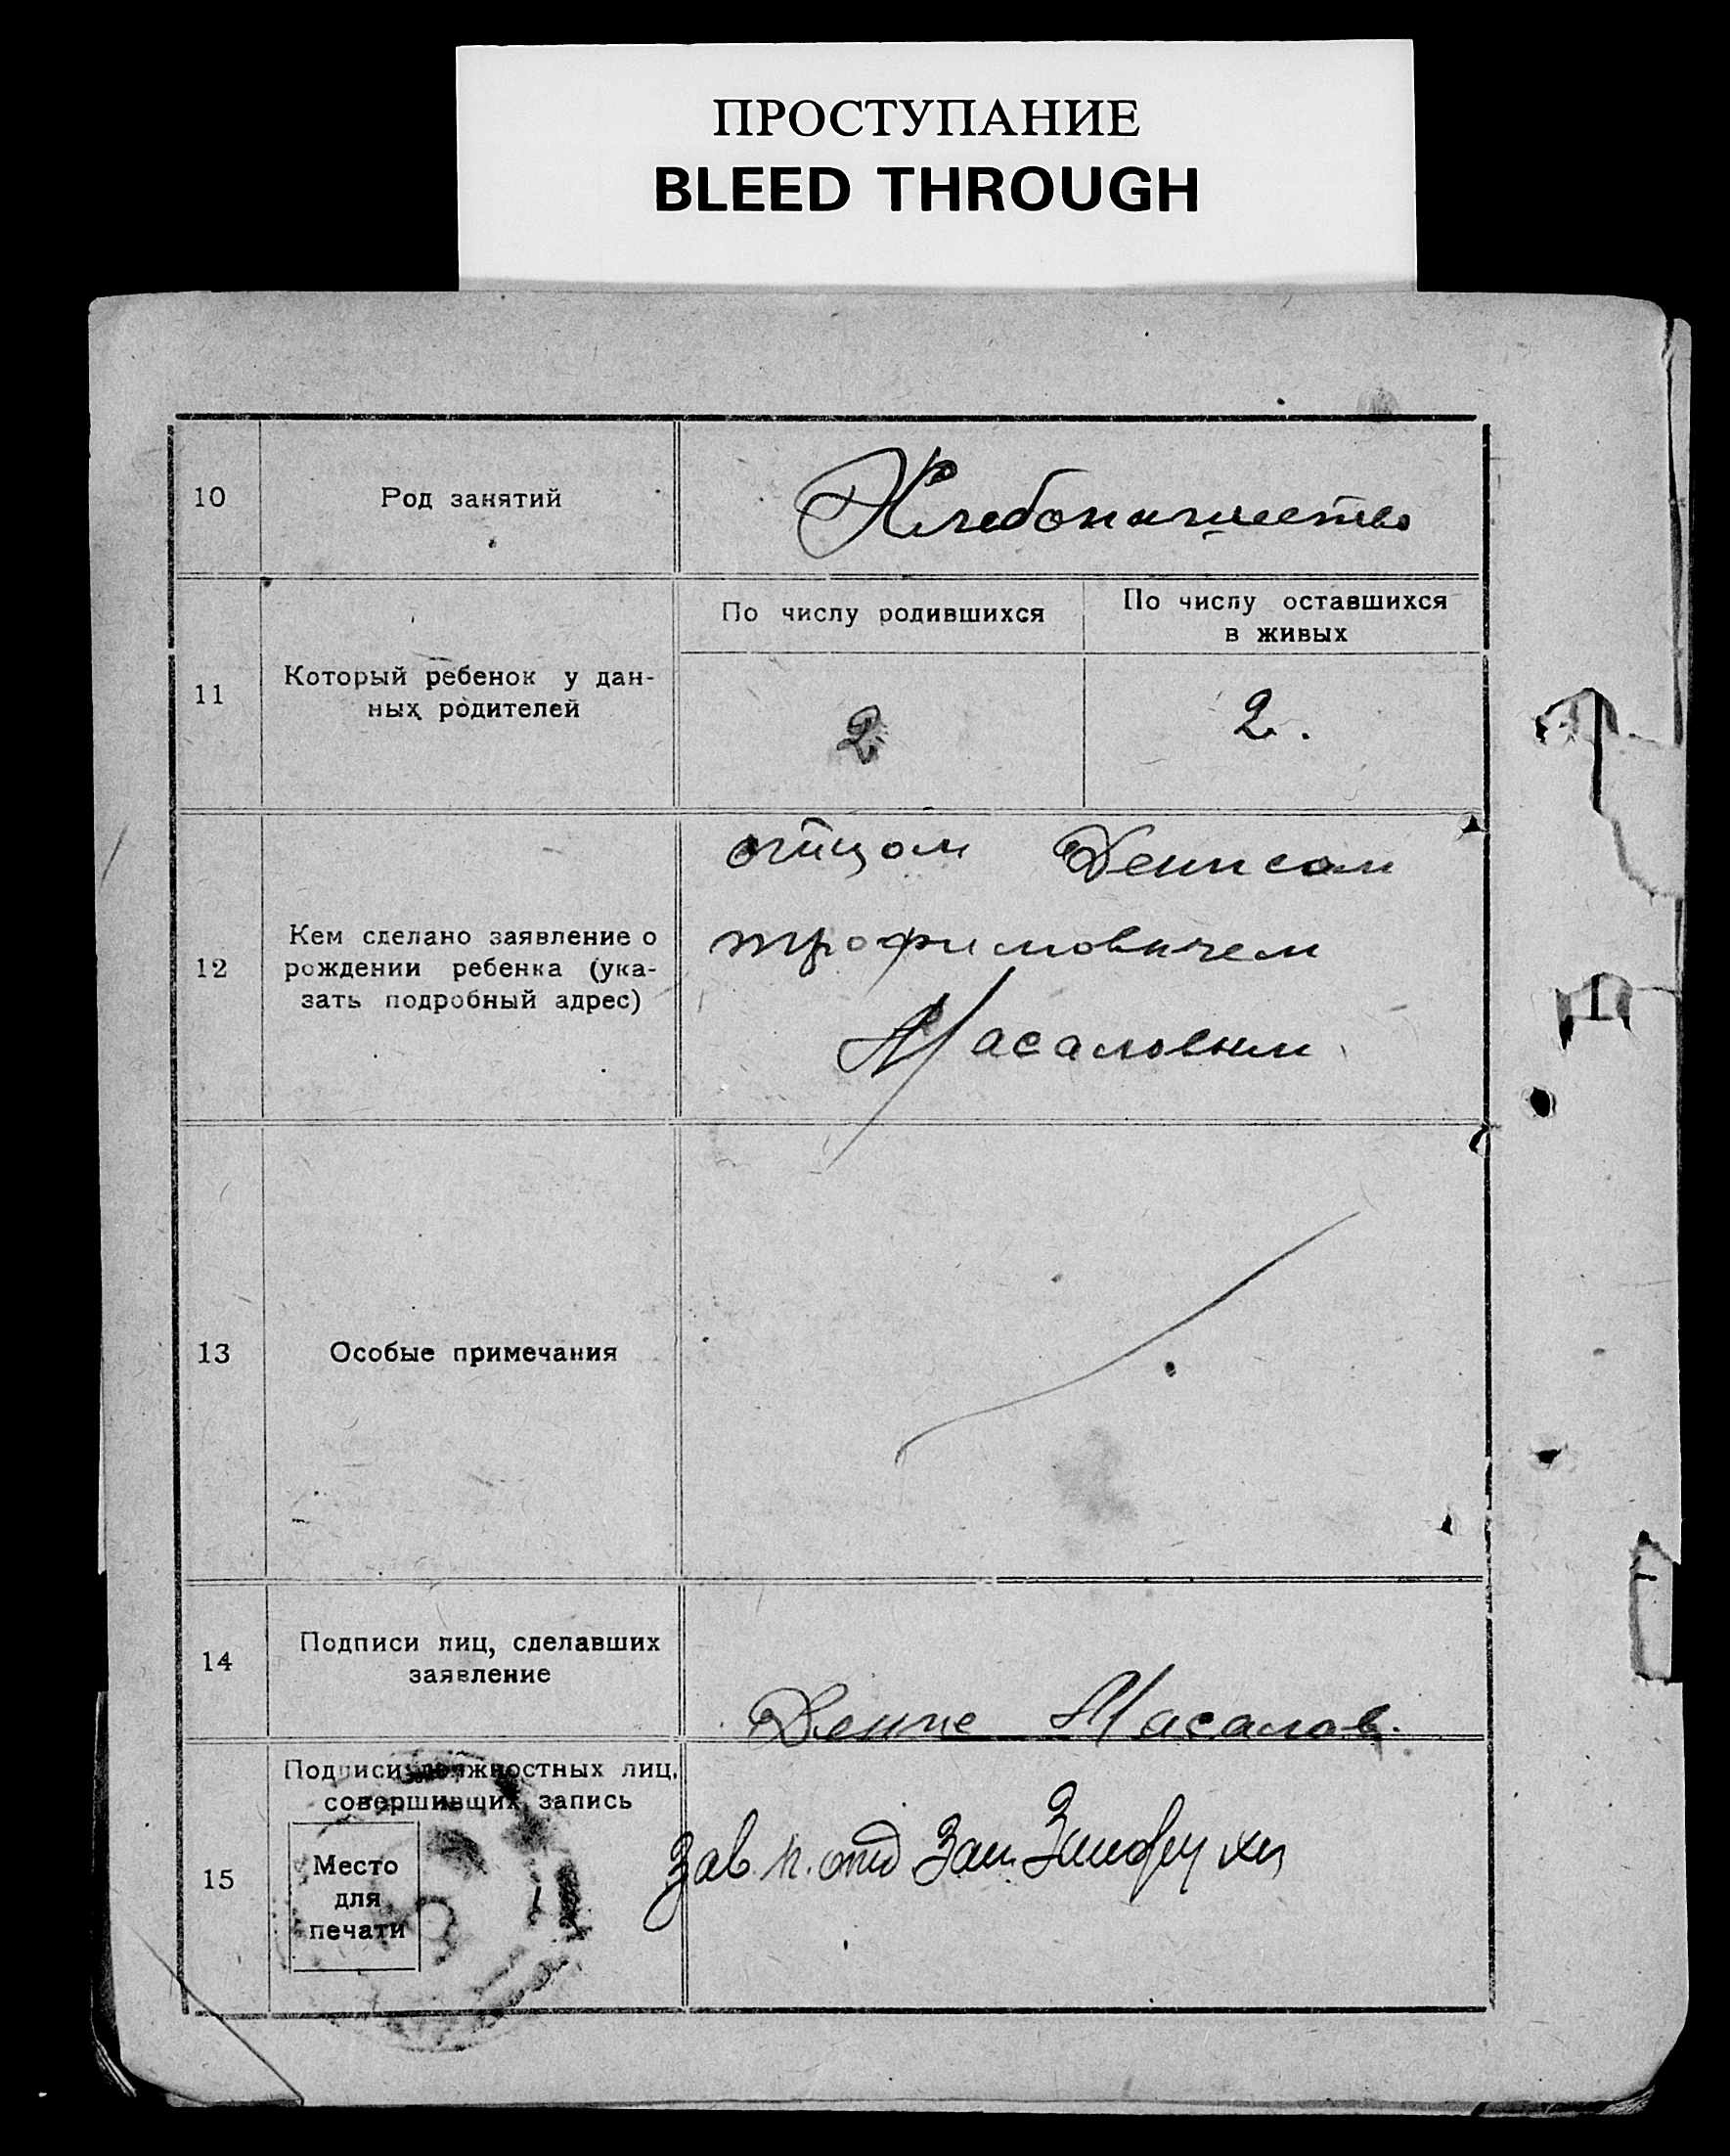 ПРОСТУПАНИЕ
BLEED THROUGH
10
Род занятий
Хлебопашество
11
Который ребенок у дан-
ных родителей
По числу родившихся
По числу оставшихся
в живых
2
2.
12
Кем сделано заявление о
рождении ребенка (ука-
зать подробный адрес)
отцом Денисом
трофимовичем
Масаловым
13
Особые примечания
14
Подписи лиц, сделавших
заявление
Денис Масалов.
15
Подписи должностных лиц,
совершивших запись
Место
для
печати
Зав. п. отд Зап.